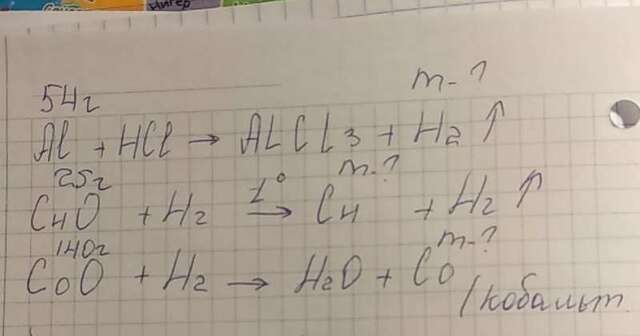 54г m-?
Al + HCl → ALCL3 + H2 ↑
25г m-?
CuO + H2 t°→ Cu + H2 ↑
140г m-?
CoO + H2 → H2O + Co
/кобальт